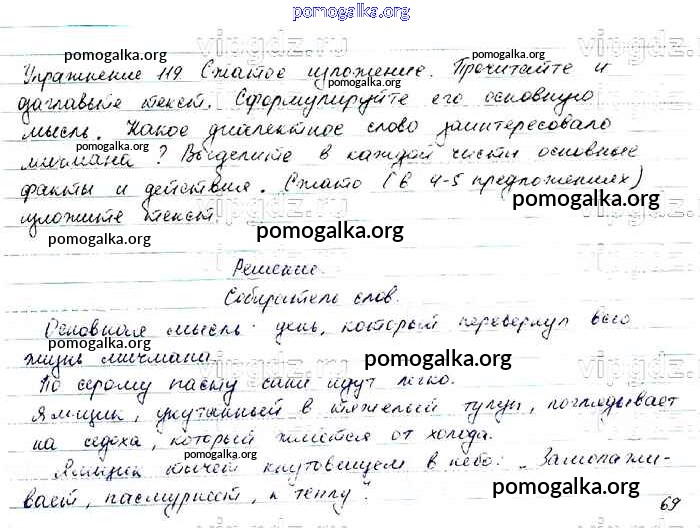 pomogalka.org
Упражнение 119 Сжатое изложение. Прочитайте и
озаглавьте текст. Сформулируйте его основную
мысль. Какое диалектное слово заинтересовало
мичмана? Выделите в каждой части основные
факты и действия. Сжато (в 4-5 предложениях)
изложите текст.
Решение.
Собиратель слов.
Основная мысль: день, который перевернул всю
жизнь мичмана.
По серому насту сани идут легко.
Ямщик, укутанный в тяжелый тулуп, поглядывает
на седока, который жмется от холода.
Ямщик тычет кнутовищем в небо: „Замолажи-
вает, пасмурнеет, к теплу".
69
pomogalka.org
pomogalka.org
pomogalka.org
pomogalka.org
pomogalka.org
pomogalka.org
pomogalka.org
pomogalka.org
pomogalka.org